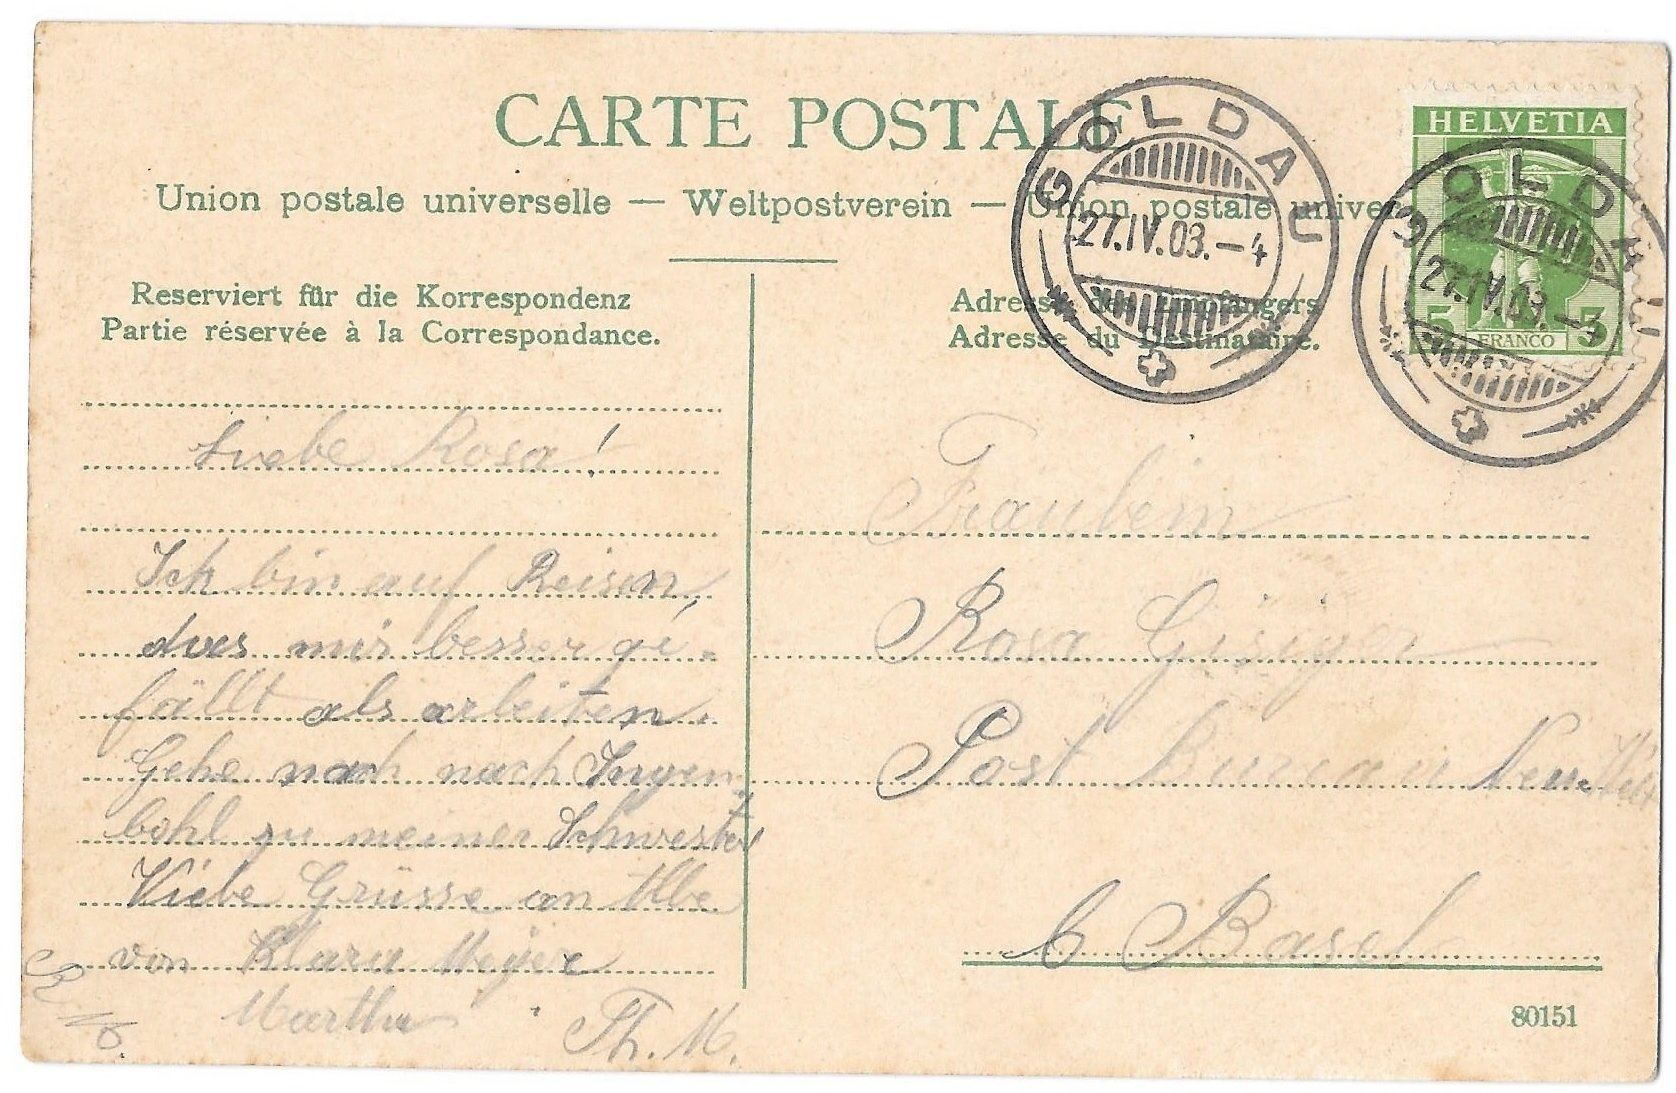 CARTE POSTALE
Union postale universelle — Weltpostverein — Union postale unive
GOLDAU
27.IV.03.-4
HELVETIA
5 FRANCO 5
GOLDAU
27.IV.03.-4
Reserviert für die Korrespondenz
Partie réservée à la Correspondance.
Adresse des Empfängers
Adresse du Destinataire.
Liebe Rosa!
Ich bin auf Reisen,
dues mir besser ge-
fällt als arbeiten.
Gehe noch nach Ingen-
bohl zu meiner Schwester
Viele Grüsse an Alle
von Klara Meyer
Martha Th. M.
Fraulein
Rosa Gisiger
Post Bureau Neue Welt
b Basel
80151